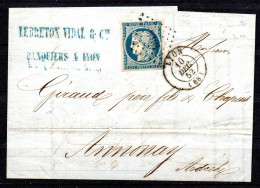 LEBRETON VIDAL & Cie
BANQUIERS A LYON
LYON
10
DEC.
52
(68)
Monsieur
Giraud père fils de Chapuis
Annonay
Ardèche